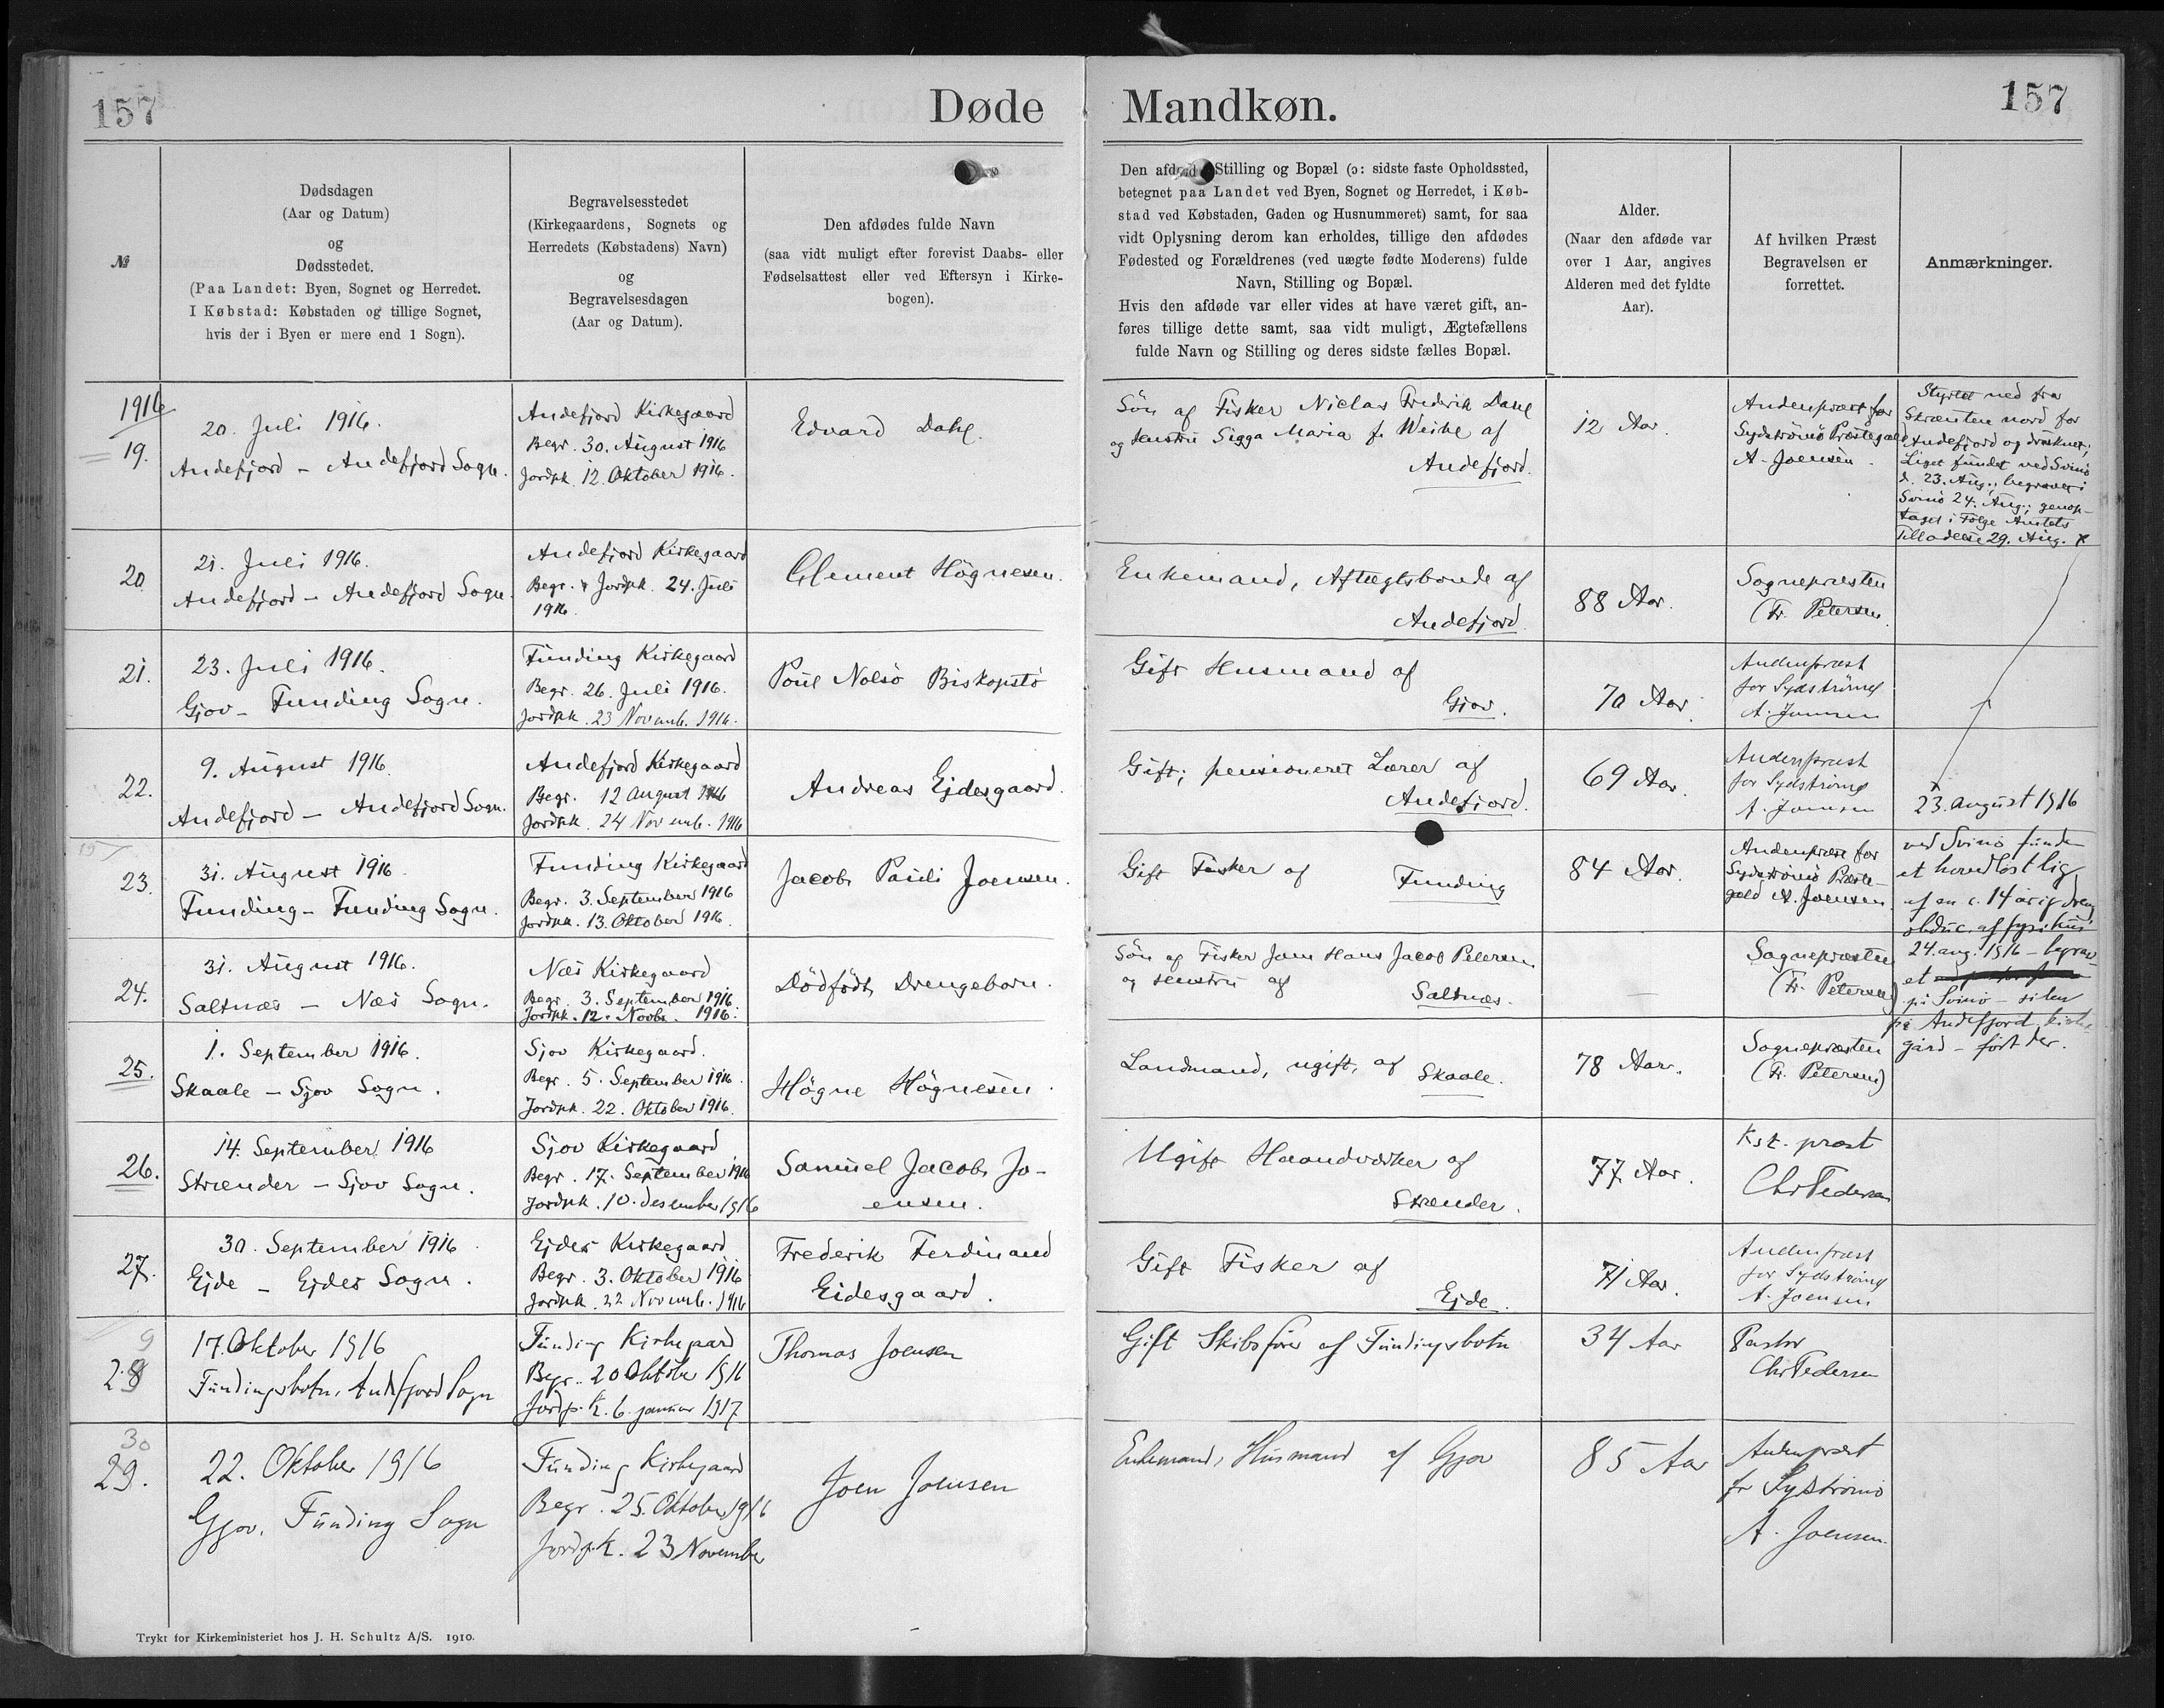 157
Døde
Mandkøn.
157
№
Dødsdagen
(Aar og Datum)
og
Dødsstedet.
(Paa Landet: Byen, Sognet og Herredet.
I Købstad: Købstaden og tillige Sognet,
hvis der i Byen er mere end 1 Sogn).
Begravelsesstedet
(Kirkegaardens, Sognets og
Herredets (Købstadens) Navn)
og
Begravelsesdagen
(Aar og Datum).
Den afdødes fulde Navn
(saa vidt muligt efter forevist Daabs- eller
Fødselsattest eller ved Eftersyn i Kirke-
bogen).
Den afdødes Stilling og Bopæl (ɔ: sidste faste Opholdssted,
betegnet paa Landet ved Byen, Sognet og Herredet, i Køb-
stad ved Købstaden, Gaden og Husnummeret) samt, for saa
vidt Oplysning derom kan erholdes, tillige den afdødes
Fødested og Forældrenes (ved uægte fødte Moderens) fulde
Navn, Stilling og Bopæl.
Hvis den afdøde var eller vides at have været gift, an-
føres tillige dette samt, saa vidt muligt, Ægtefællens
fulde Navn og Stilling og deres sidste fælles Bopæl.
Alder.
(Naar den afdøde var
over 1 Aar, angives
Alderen med det fyldte
Aar).
Af hvilken Præst
Begravelsen er
forrettet.
Anmærkninger.
1916
19.
20. Juli 1916.
Andefjord - Andefjord Sogn.
Andefjord Kirkegaard
Begr. 30. August 1916
Jordpk. 12. Oktober 1916.
Edvard Dahl.
Søn af Fisker Niclas Frederik Dahl
og Hustru Sigga Maria f. Weihe af
Andefjord.
12 Aar.
Andenpræst for
Sydstrømø Præstegæld
A. Joensen.
Styrtet ned fra
Skrænten nord for
Andefjord og druknet;
Liget fundet ved Svinø
d. 23. Aug.; begravet i
Svinø 24. Aug.; genop-
taget i Følge Amtets
Tilladelse 29. Aug. x
20
21. Juli 1916.
Andefjord - Andefjord Sogn.
Andefjord Kirkegaard
Begr. & Jordpk. 24. Juli
1916.
Clement Høgnesen.
Enkemand, Aftægtsbonde af
Andefjord.
88 Aar.
Sognepræsten
(Fr. Petersen
21.
23. Juli 1916.
Gjov - Funding Sogn.
Funding Kirkegaard
Begr. 26. Juli 1916.
Jordpk. 23 Novemb. 1916.
Poul Nolsø Biskopstø
Gift Husmand af
Gjov.
70 Aar.
Andenpræst
for Sydstrømø
A. Joensen
22.
9. August 1916.
Andefjord - Andefjord Sogn.
Andefjord Kirkegaard
Begr. 12 August 1916
Jordpk. 24 Novemb. 1916
Andreas Ejdesgaard.
Gift; pensioneret Lærer af
Andefjord.
69 Aar.
Andenpræst
for Sydstrømø
A. Joensen
x
23. august 1916
ved Svinø funden
et hovedløst lig
af en c. 14 årig dreng,
obduc. af fysikus
24. aug. 1916 - begrav-
et
på Svinø - siden
på Andefjord kirke-
gård - ført der.
23.
31. August 1916.
Funding - Funding Sogn.
Funding Kirkegaard
Begr. 3. September 1916
Jordpk. 13. Oktober 1916.
Jacob Pauli Joensen.
Gift Fisker af
Funding
84 Aar.
Andenpræst for
Sydstrømø Præste-
gæld A. Joensen.
24.
31. August 1916.
Saltnæs - Næs Sogn.
Næs Kirkegaard
Begr. 3. September 1916.
Jordpk. 12. Novbr. 1916.
Dødfødt Drengebarn.
Søn af Fisker Jens Hans Jacob Petersen
og Hustru af
Saltnæs.
—
Sognepræsten
(Fr. Petersen)
25.
1. September 1916.
Skaale - Sjov Sogn.
Sjov Kirkegaard.
Begr. 5. September 1916.
Jordpk. 22. Oktober 1916.
Høgne Høgnesen.
Landmand, ugift, af Skaale.
78 Aar.
Sognepræsten
(Fr. Petersen)
26.
14. September 1916
Strænder - Sjov Sogn.
Sjov Kirkegaard
Begr. 17. September 1916
Jordpk. 10. desember 1916
Samuel Jacob Jo-
ensen.
Ugift Haandværker af
Strænder.
77 Aar.
Kst. præst
Chr Pedersen
27.
30. September 1916.
Ejde - Ejdes Sogn.
Ejdes Kirkegaard
Begr. 3. Oktober 1916
Jordpk. 22 Novemb. 1916
Frederik Ferdinand
Eidesgaard.
Gift Fisker af
Ejde.
71 Aar.
Andenpræst
for Sydstrømø
A. Joensen
9
28
17. Oktober 1916
Fundingsbotn, Andefjord Sogn
Funding Kirkegaard
Begr. 20 Oktober 1916
Jordp.k. 6. januar 1917.
Thomas Joensen
Gift Skibsfører af Fundingsbotn
34 Aar
Pastor
Chr Pedersen
30
29.
22. Oktober 1916
Gjov, Funding Sogn
Funding Kirkegaard
Begr. 25. Oktober 1916
Jordp.k. 23 November
Joen Joensen
Enkemand, Husmand af Gjov
85 Aar
Andenpræst
fr Sydstrømø
A. Joensen.
Trykt for Kirkeministeriet hos J. H. Schultz A/S. 1910.